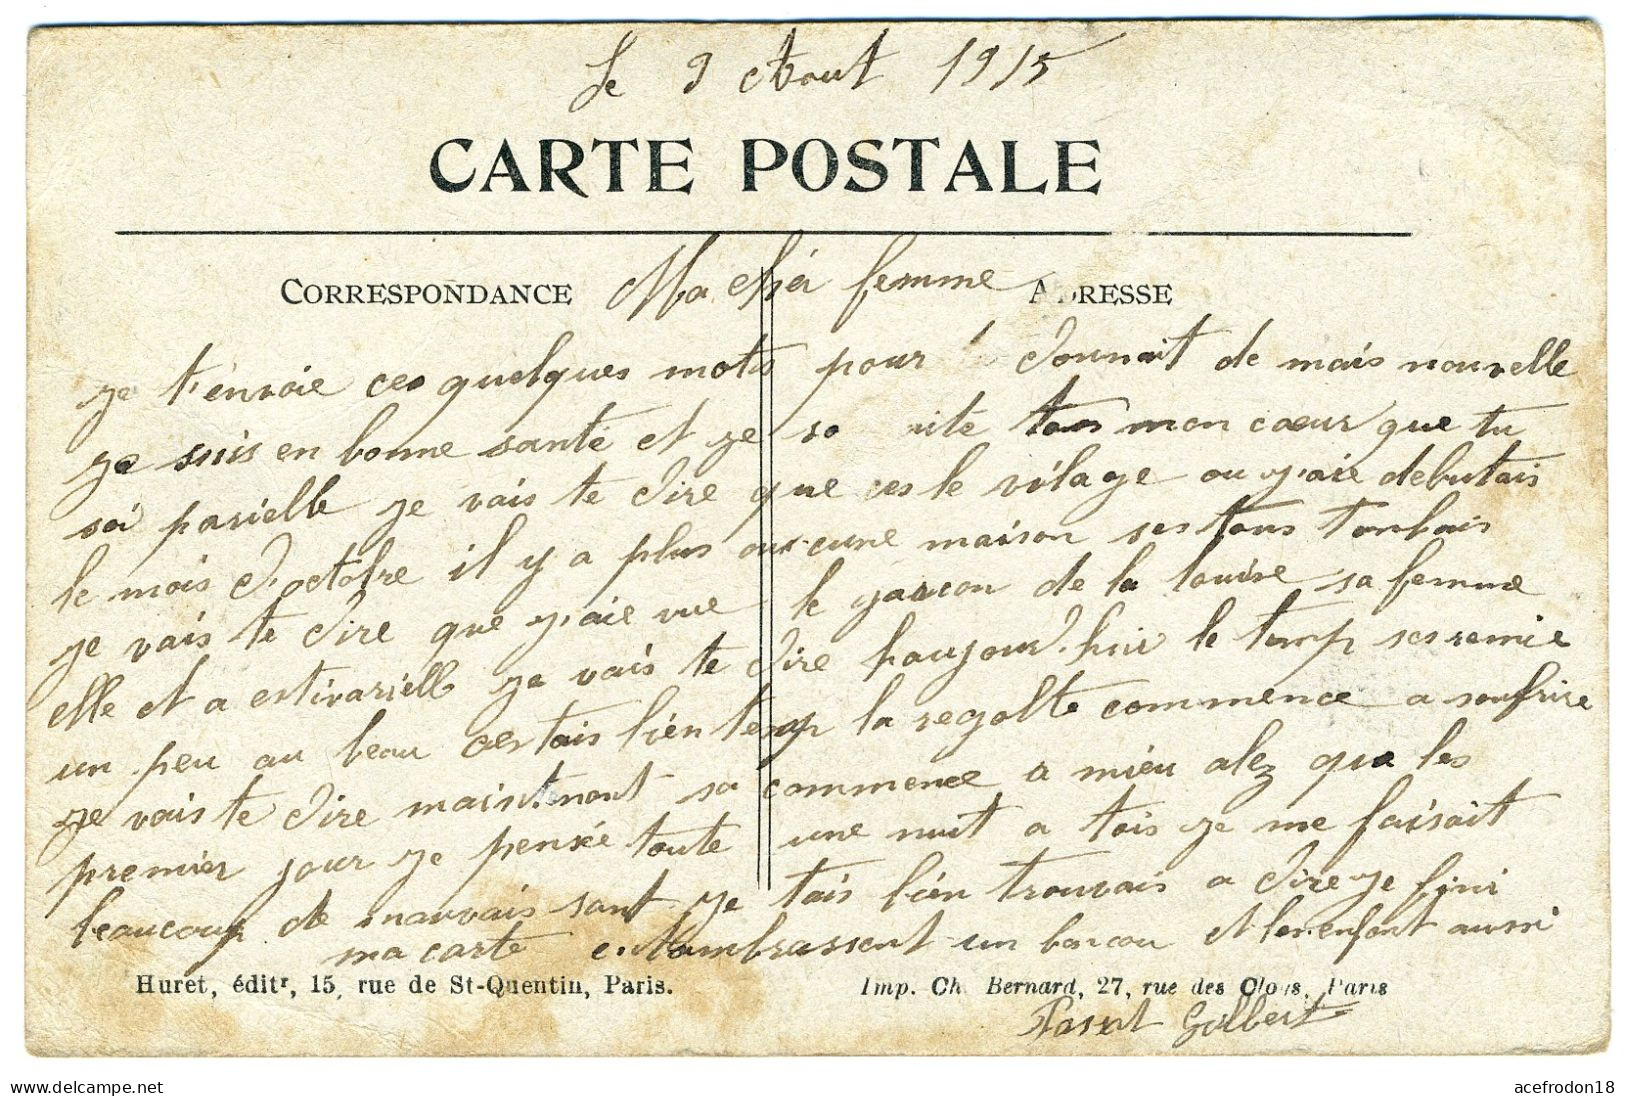 Le 9 Aout 1915
CARTE POSTALE
CORRESPONDANCE Ma chér femme ADRESSE
je t'envoie ces quelques mots pour donnait de mais nouvelle
je suis en bonne santé et je so uite tous mon cœur que tu
soi parielle je vais te dire que ces le vilage ou j'aie debutais
le mois d'octobre il y a plus aucune maison ses tous tonbais
je vais te dire que j'aie vue le garcon de la louise sa femme
elle et a je vais te dire paujourd'huir le temp ses remie
un peu au beau bien temp la regolte commence a soufrire
je vais te dire maintenant sa commence a mieu alez que les
premier jour je pensée toute une nuit a tois je me faisait
beaucoup de mauvais sant je tais bien trouvais a dire je fini
ma carte en tambrassent un baucou et les enfant aussi
Huret, éditr, 15, rue de St-Quentin, Paris. Imp. Ch. Bernard, 27, rue des Cloys, Paris
Gilbert
delcampe.net
acefrodon18